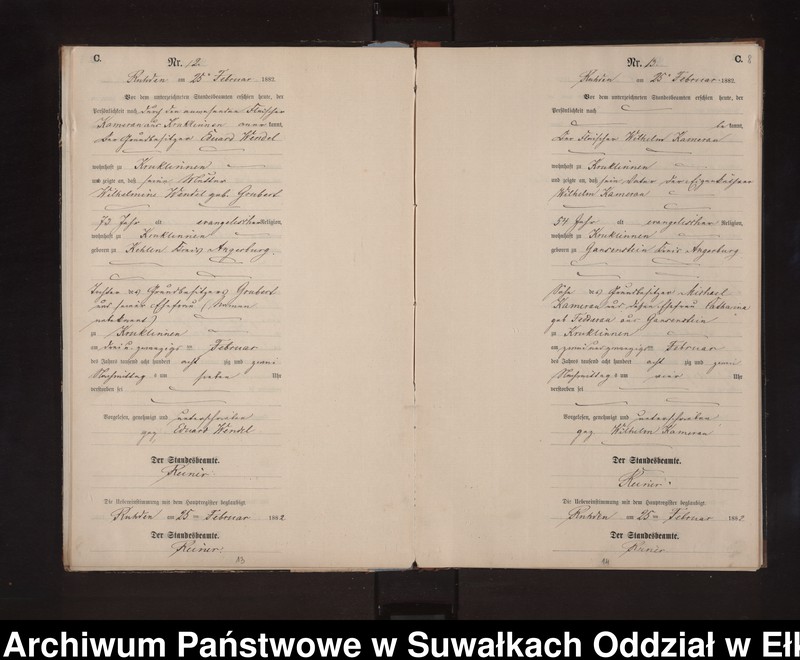 C.
Nr. 12.
Ruhden am 25ten Februar 1882.
Vor dem unterzeichneten Standesbeamten erschien heute, der
Persönlichkeit nach durch den anwesenden Fleischer
Kameran aus Kruklinnen anerkannt,
der Grundbesitzer Eduard Wendel
wohnhaft zu Kruklinnen
und zeigte an, daß seine Mutter
Wilhelmine Wendel geb. Grubert
73 Jahr alt evangelischer Religion,
wohnhaft zu Kruklinnen
geboren zu Kehlen Kreis Angerburg
Tochter des Grundbesitzers Grubert
und seiner Ehefrau (Namen
unbekannt)
zu Kruklinnen
am drei u. zwanzigsten Februar
des Jahres tausend acht hundert acht zig und zwei
Nachmittag s um sieben Uhr
verstorben sei
Vorgelesen, genehmigt und unterschrieben
gez Eduard Wendel
Der Standesbeamte.
Reiner
Die Uebereinstimmung mit dem Hauptregister beglaubigt.
Ruhden am 25ten Februar 1882
Der Standesbeamte.
Reiner
13
C. 8
Nr. 13.
Ruhden am 25ten Februar 1882.
Vor dem unterzeichneten Standesbeamten erschien heute, der
Persönlichkeit nach
be kannt,
der Fleischer Wilhelm Kameran
wohnhaft zu Kruklinnen
und zeigte an, daß sein Vater der Eigenkäthner
Wilhelm Kameran
54 Jahr alt evangelischer Religion,
wohnhaft zu Kruklinnen
geboren zu Gansenstein Kreis Angerburg
Sohn des Grundbesitzer Michael
Kameran und dessen Ehefrau Catharina
geb. Fedderan aus Gansenstein
zu Kruklinnen
am zwei und zwanzigsten Februar
des Jahres tausend acht hundert acht zig und zwei
Nachmittag s um vier Uhr
verstorben sei
Vorgelesen, genehmigt und unterschrieben
gez Wilhelm Kameran
Der Standesbeamte.
Reiner
Die Uebereinstimmung mit dem Hauptregister beglaubigt.
Ruhden am 25ten Februar 1882.
Der Standesbeamte.
Reiner
14
Archiwum Państwowe w Suwałkach Oddział w Eł